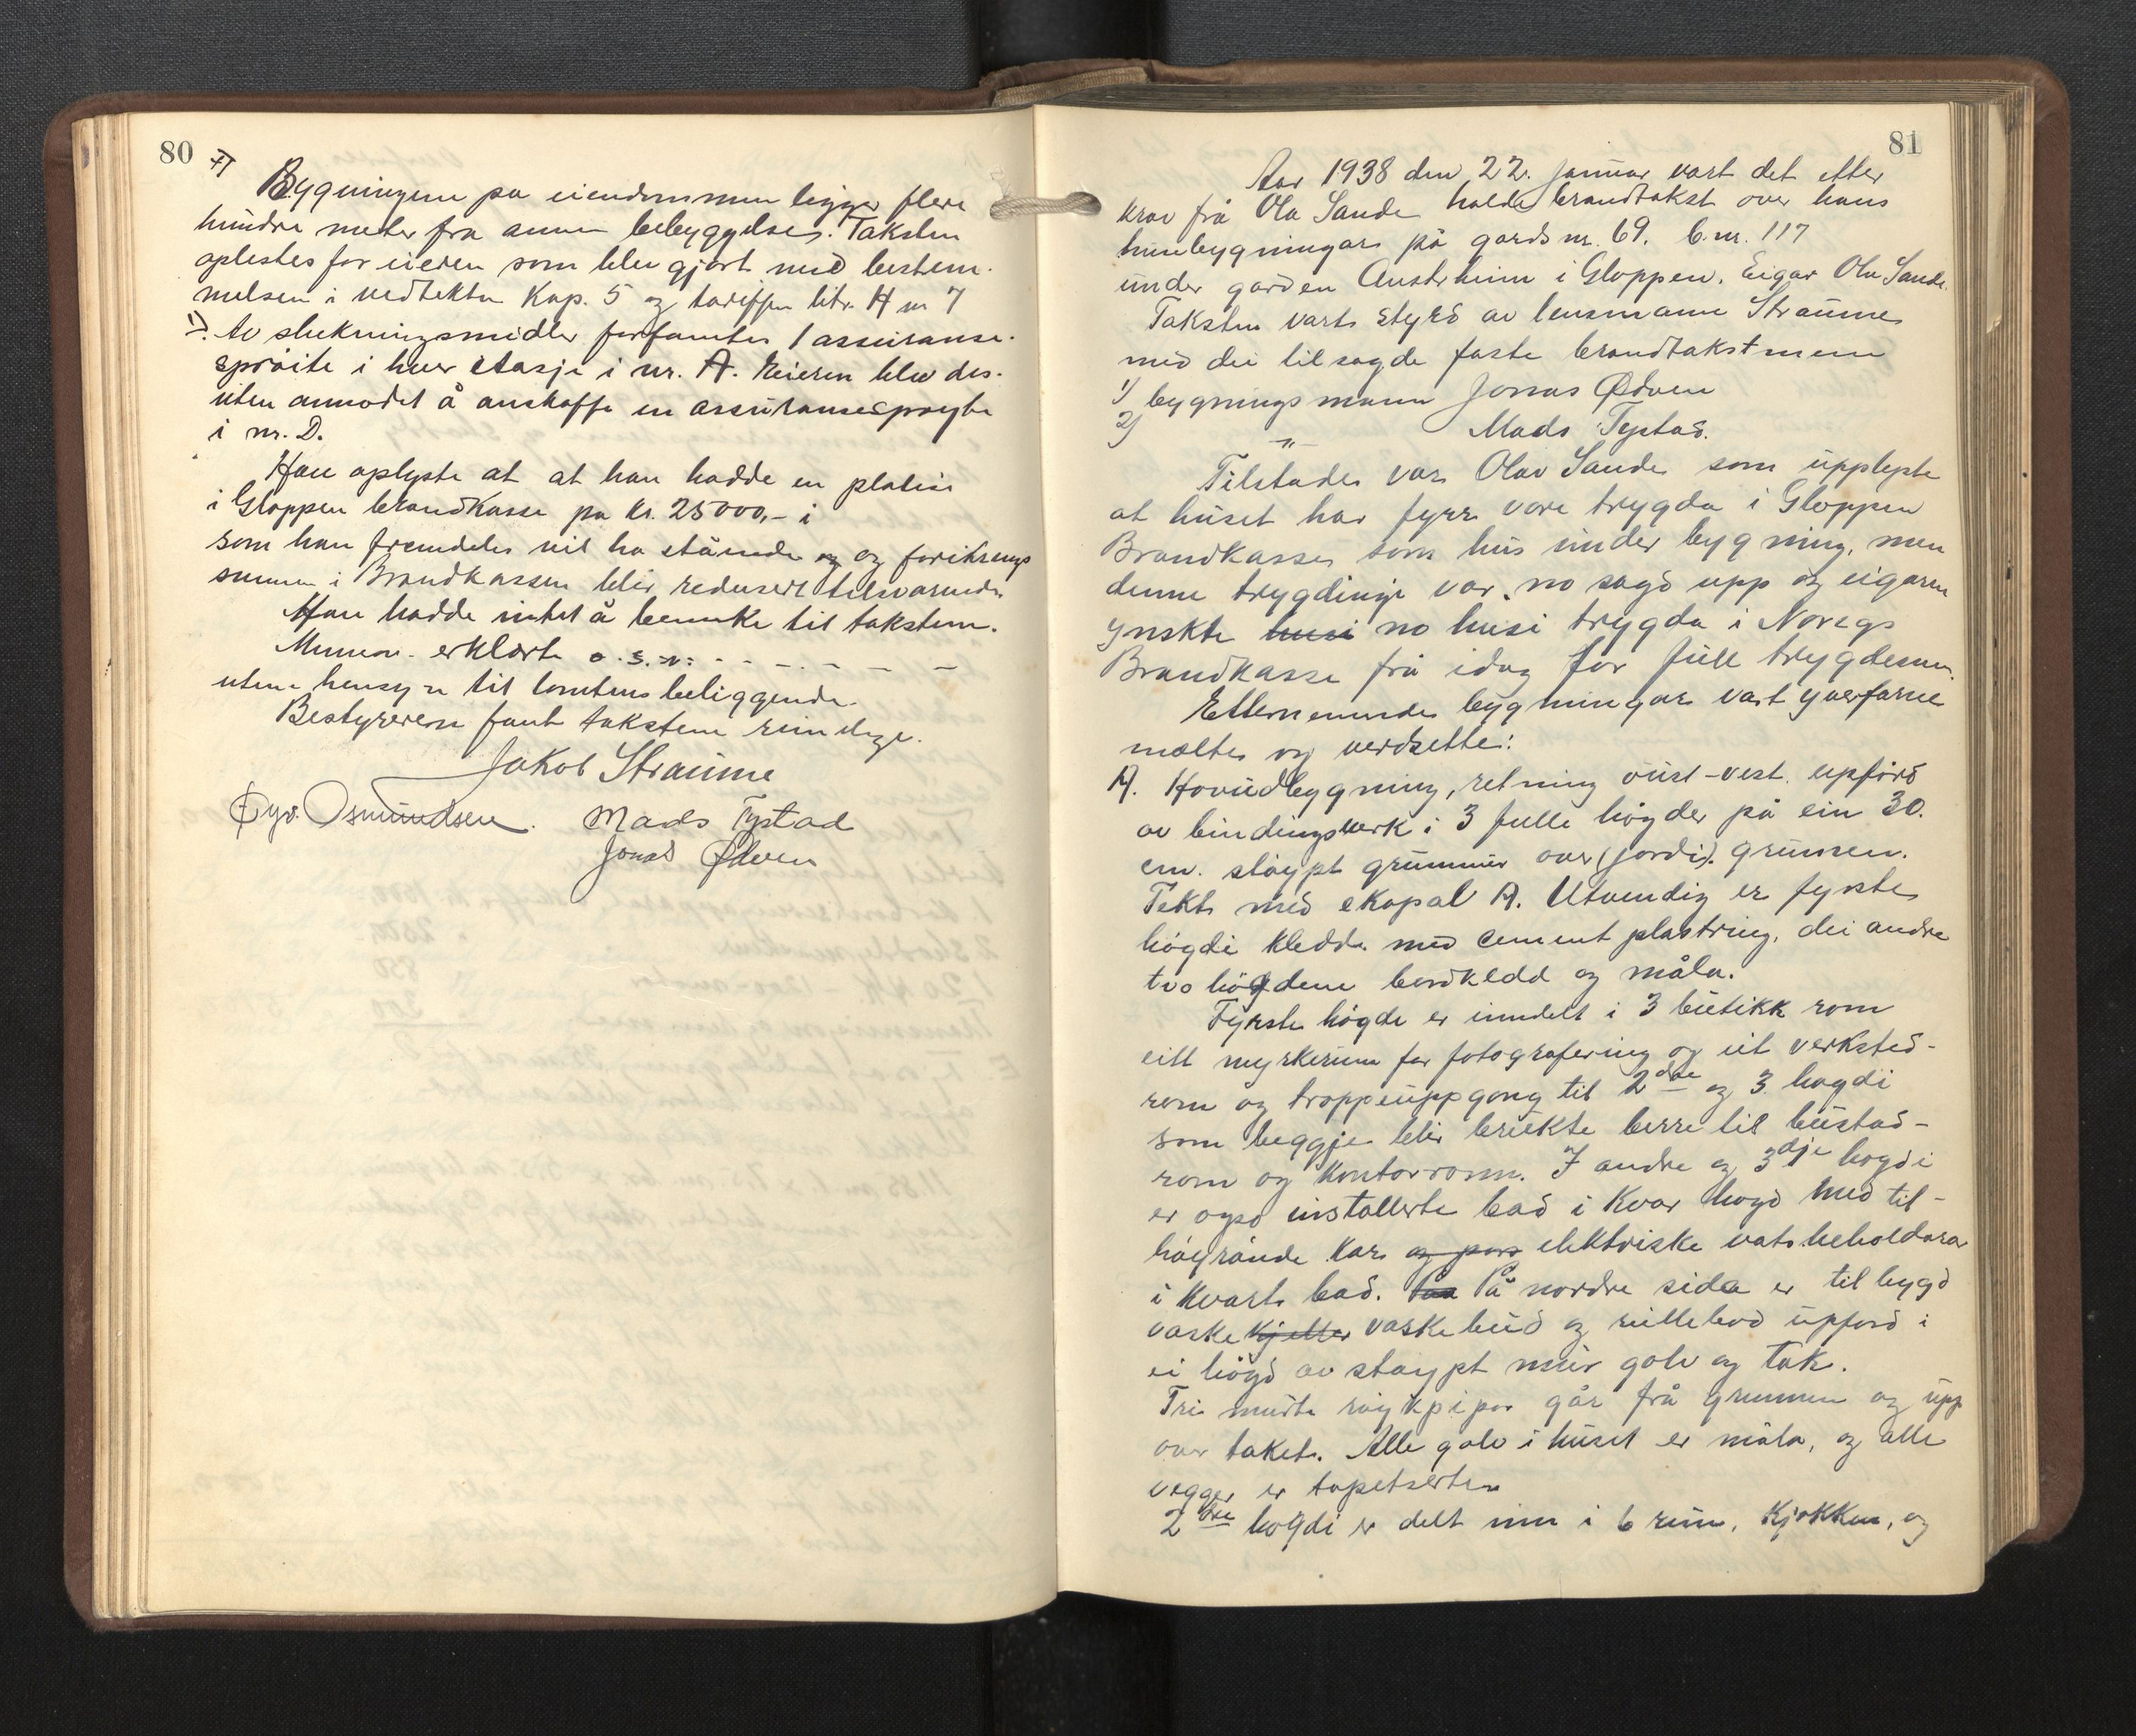 80
Bygningene på eiendommen ligger flere
hundre meter fra annen bebyggelse. Taksten
oplestes for eieren som blev gjort med bestem-
melsen i vedtektene Kap. 5 og tariffen litr. H nr 7
Av slukningsmidler forfantes 1 assuranse-
sprøite i hver etasje i nr. A. Eieren blev des-
uten anmodet å anskaffe en assuransesprøyte
i nr. D.
Han oplyste at at han hadde en polise
i Gloppen brandkasse på kr. 25000,- i
som han fremdeles vil ha stående og og forsikrings
summen i Brandkassen blir redusert tilsvarende.
Han hadde intet å bemerke til taksten.
Mennene erklærte o.s.v. - - - - - -
uten hensyn til tomtens beliggende.
Bestyreren fant taksten rimelige.
Jakob Straume
Øyv. Osmundsen. Mads Tystad
Jonas Ødven
81
Aar 1938 den 22. januar vart det etter
krav frå Ola Sande halde brandtakst over hans
husebygningar på gards nr. 69. b.nr. 117
under garden Austrheim i Gloppen. Eigar Ola Sande.
Taksten vart styrd av lensmann Straume
med dei tilsagde faste brandtakstmenn
1) bygningsmann Jonas Ødven
2) -"- Mads Tystad.
Tilstades var Olav Sande som upplyste
at huset har fyrr vore trygda i Gloppen
Brandkasse som hus under bygning, men
denne trygdinge var no sagd upp og eigaren
ynskte husi no husi trygda i Noregs
Brandkasse frå idag for full trygdesum.
Etternemnde bygningar vart yverfarne
mælte og verdsette:
A. Hovudbygning, retning aust-vest. uppførd
av bindingsverk i 3 fulle høgder på ein 30.
cm. støypt grunnmur over (jordi). grunnen.
Tekt med skapal A. Utvendig er fyrste
høgdi kledd med cement plastring, dei andre
two høgdene bordkledd og måla.
Fyrste høgde er inndelt i 3 butikk rom
eitt myrkerum for fotografering og eit verksted-
rom og troppeuppgong til 2dre og 3. høgdi
som beggje blir brukte berre til bustad-
rom og kontorrom. I andre og 3dje høgdi
er også installerte bad i kvar høgd med til-
høyrande kar og por elektriske vatsbeholdarar
i kvart bad. På nordre sida er tilbygd
vaske kjeller vaskebud og rullebod uppførd i
ei høgd av støypt mur golv og tak.
Tri murte røykpipor går frå grunnen og upp
over taket. Alle golv i huset er måla, og alle
vegger er tapetserte.
2dre høgdi er delt inn i 6 rum, kjøkken, og